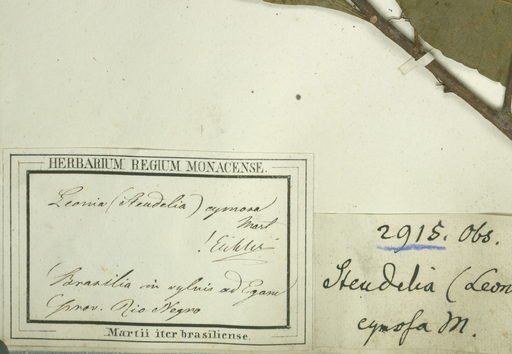 HERBARIUM REGIUM MONACENSE.
Leonia (Steudelia) cymosa
Mart
! Eichler
Brasilia in sylvis ad Egam
prov. Rio Negro
Martii iter brasiliense.
2915. Obs.
Steudelia (Leon
cymosa M.